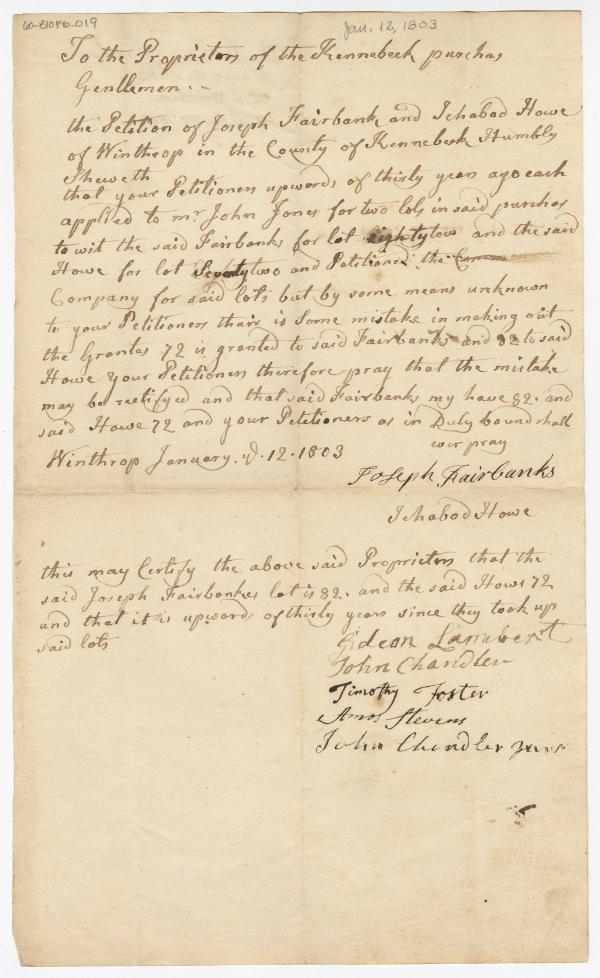 60-81OF6-019
Jan. 12, 1803
To the Proprietors of the Kennebeck purchas
Gentlemen..
the Petition of Joseph Fairbank and Ichabod Howe
of Winthrop in the County of Kennebeck Humbly
Sheweth
that your Petitioners upwords of thirty years ago each
applied to mr John Jones for two lots in said purchas
to wit the said Fairbanks for lot eightytow and the said
Howe for lot Seventytwo and Petitioned the Com
Company for said lots but by some means unknown
to your Petitioners thair is Some mistake in making out
the Grantes 72 is granted to said Fairbanks and 82 to said
Howe your Petitioners therefore pray that the mistake
may be rectifyed and that said Fairbanks my have 82. and
said Howe 72 and your Petitioners as in Duty bound shall
ever pray
Winthrop January. d. 12. 1803
Joseph Fairbanks
Ichabod Howe
this may Certify the above said Proprietors that the
said Joseph Fairbankes lot is 82. and the said Hows 72
and that it is upwords of thirty years since they took up
said lots
Gideon Lambert
John Chandler
Timothy Foster
Amos Stevens
John Chandler